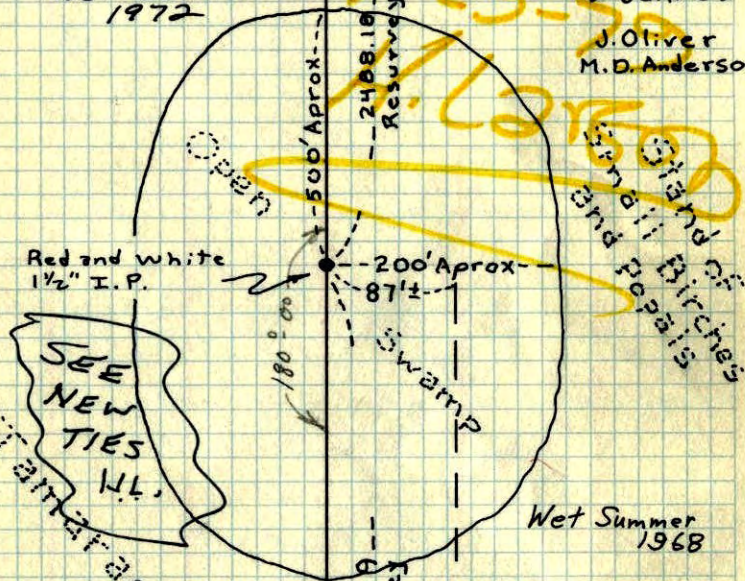 1972
J. Oliver
M.D. Anderso
H. Larson
500' Aprox
2488.18
Resurvey
Open
Stand of
Small Birches
and Popals
Red and White
1½" I.P.
200' Aprox
87'±
180°-00'
Swamp
SEE
NEW
TIES
H.L.
Tamarac
Wet Summer
1968